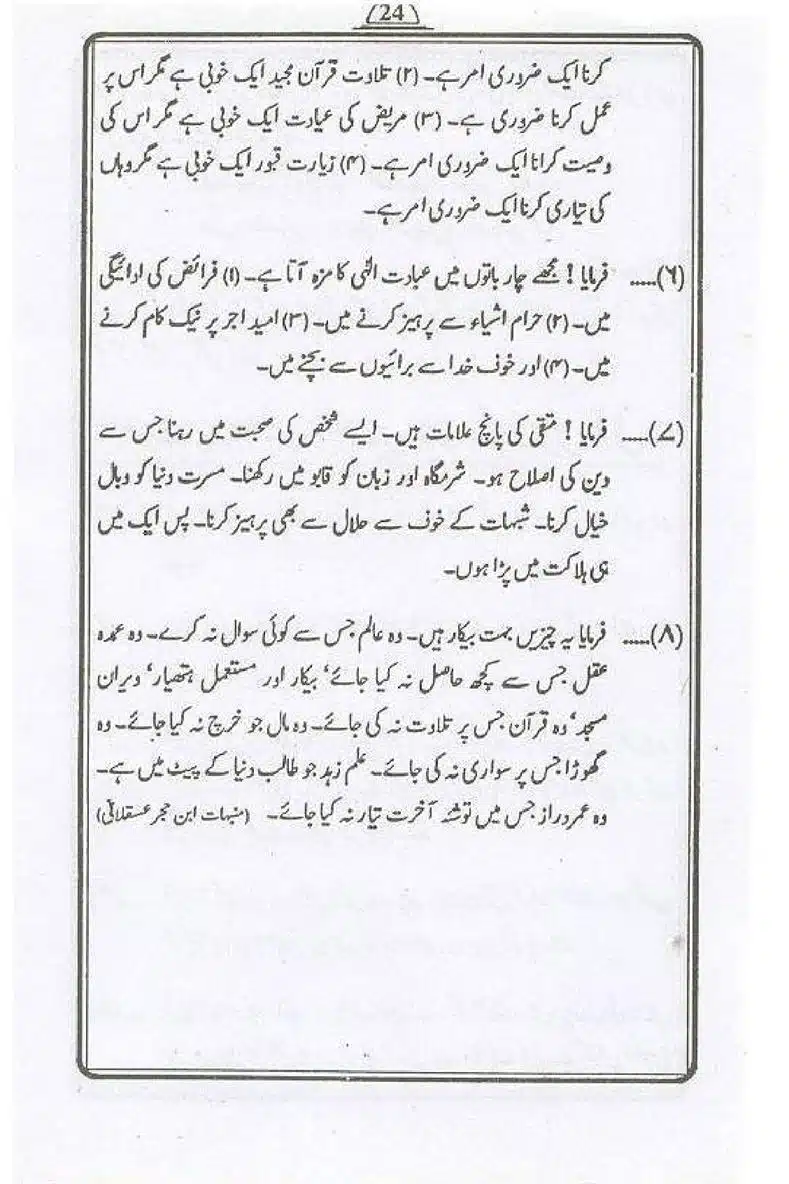 (24)
کرنا ایک ضروری امر ہے۔ (۲) تلاوت قرآن مجید ایک خوبی ہے مگر اس پر
عمل کرنا ضروری ہے۔ (۳) مریض کی عیادت ایک خوبی ہے مگر اس کی
وصیت کرانا ایک ضروری امر ہے۔ (۴) زیارت قبور ایک خوبی ہے مگر وہاں
کی تیاری کرنا ایک ضروری امر ہے۔
(۶)..... فرمایا ! مجھے چار باتوں میں عبادت الٰہی کا مزہ آتا ہے۔ (۱) فرائض کی ادائیگی
میں۔ (۲) حرام اشیاء سے پرہیز کرنے میں۔ (۳) امید اجر پر نیک کام کرنے
میں۔ (۴) اور خوف خدا سے برائیوں سے بچنے میں۔
(۷)..... فرمایا ! متقی کی پانچ علامات ہیں۔ ایسے شخص کی صحبت میں رہنا جس سے
دین کی اصلاح ہو۔ شرمگاہ اور زبان کو قابو میں رکھنا۔ مسرت دنیا کو وبال
خیال کرنا۔ شبہات کے خوف سے حلال سے بھی پرہیز کرنا۔ پس ایک میں
ہی ہلاکت میں پڑا ہوں۔
(۸)..... فرمایا یہ چیزیں بہت بیکار ہیں۔ وہ عالم جس سے کوئی سوال نہ کرے۔ وہ عمدہ
عقل جس سے کچھ حاصل نہ کیا جائے‘ بیکار اور مستعمل ہتھیار‘ ویران
مسجد‘ وہ قرآن جس پر تلاوت نہ کی جائے۔ وہ مال جو خرچ نہ کیا جائے۔ وہ
گھوڑا جس پر سواری نہ کی جائے۔ علم زہد جو طالب دنیا کے پیٹ میں ہے۔
وہ عمر دراز جس میں توشہ آخرت تیار نہ کیا جائے۔ (منبہات ابن حجر عسقلانیؒ)